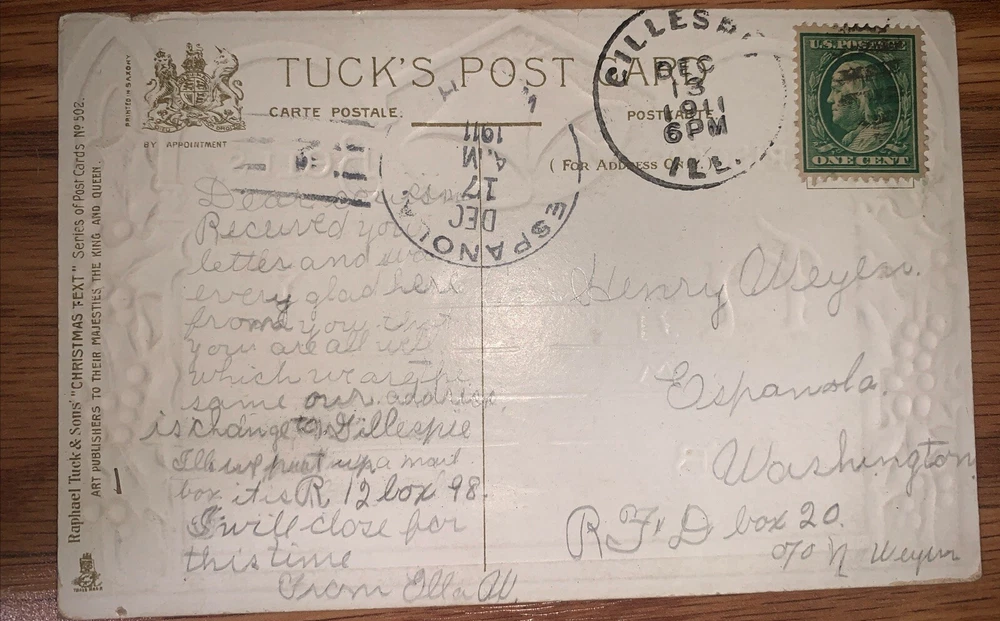 TUCK'S POST CARD
CARTE POSTALE.
POSTKARTE
(FOR ADDRESS ONLY.)
PRINTED IN SAXONY
BY APPOINTMENT
Raphael Tuck & Sons' "CHRISTMAS TEXT" Series of Post Cards No 502.
ART PUBLISHERS TO THEIR MAJESTIES THE KING AND QUEEN.
TRADE MARK
GILLESP
DEC
13
1911
6 PM
ILL.
U.S. POSTAGE
ONE CENT
ESPANOLA
DEC
17
A.M
1911
Dear
Received your
letter and was
every glad here
from you that
you are all well
which we are the
same our address
is change to Gillespie
Ill we put up a mail
box it is R 12 box 98.
I will close for
this time
From Ella W.
Henry Weyen.
Espanola.
Washington
R F D box 20.
c/o N Weyen